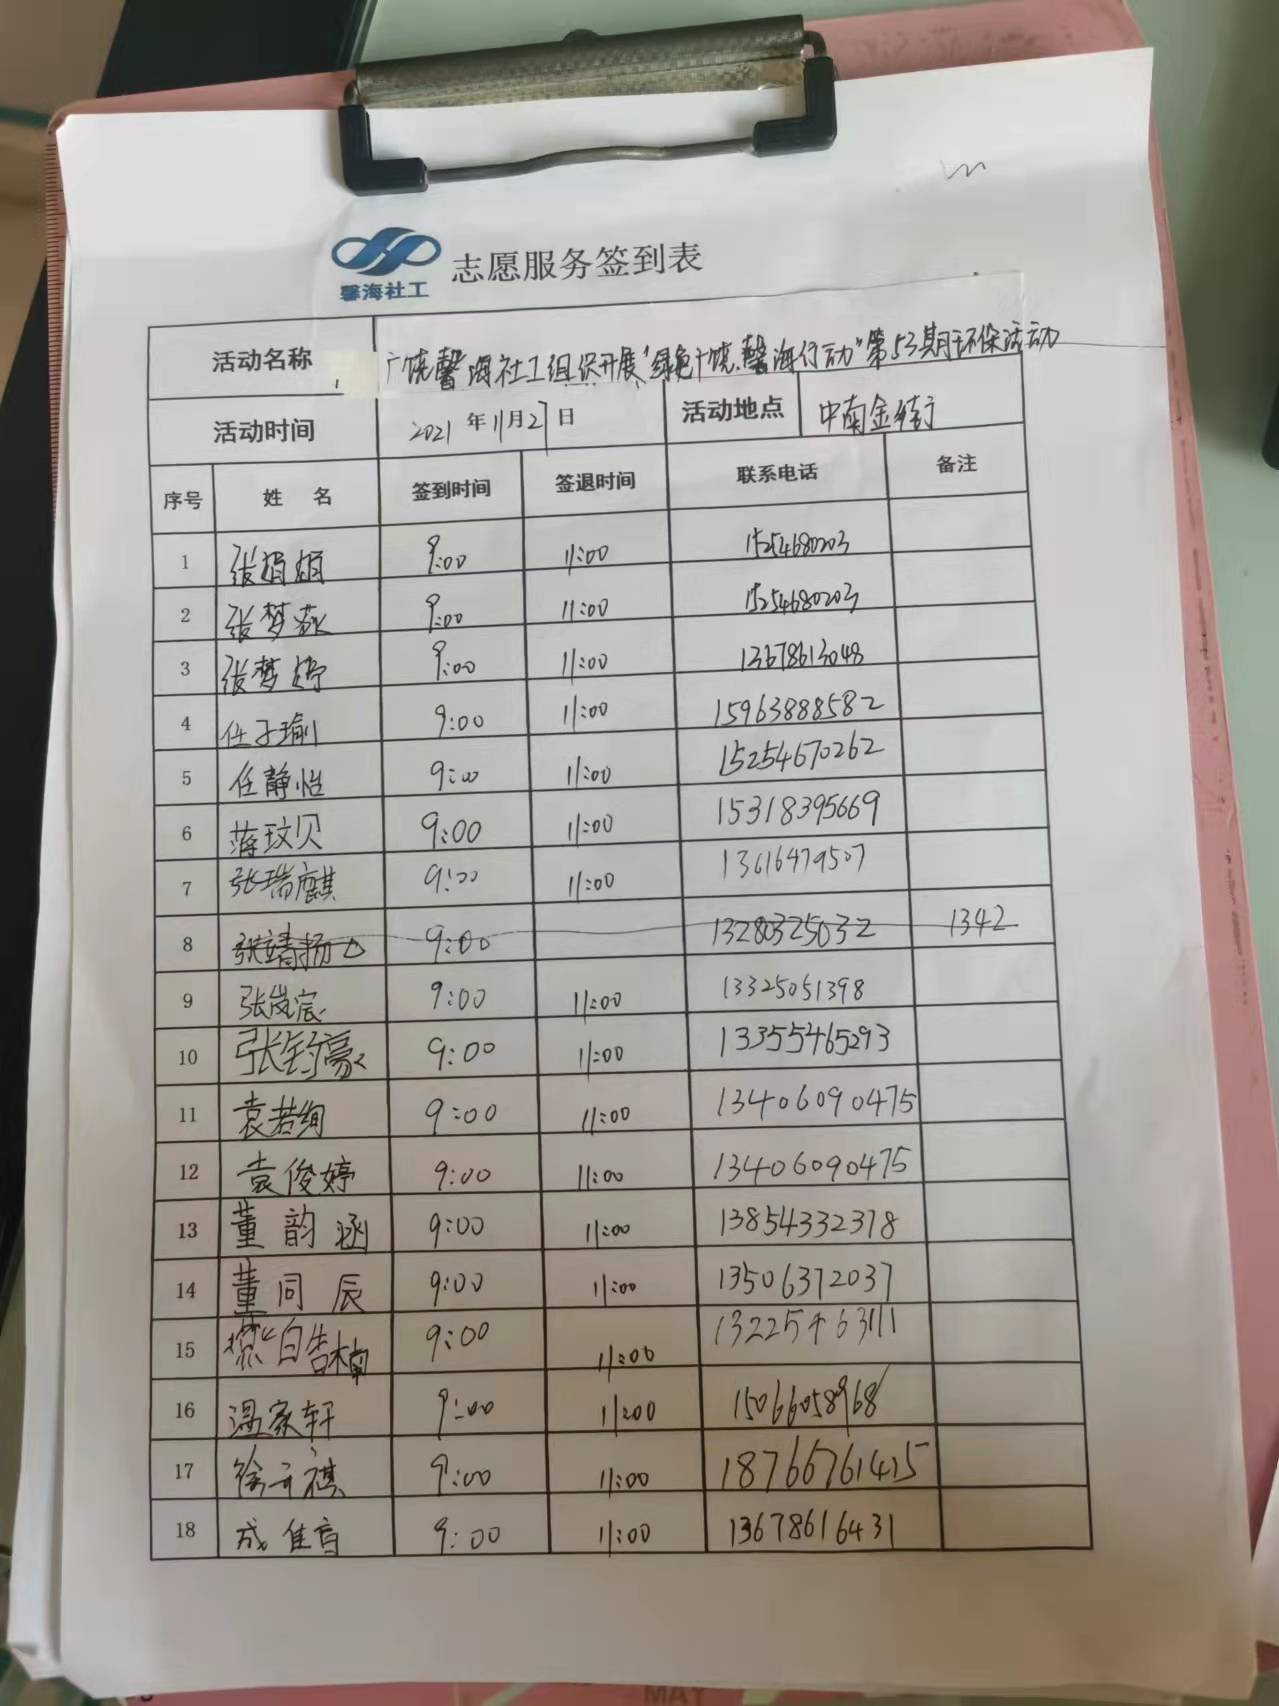 馨海社工 志愿服务签到表
活动名称 广饶馨海社工组织开展"绿色广饶.馨海行动"第53期环保活动
活动时间 2021年11月27日 活动地点 中南金街
序号 姓 名 签到时间 签退时间 联系电话 备注
1 张娟娟 9:00 11:00 15254680203
2 张梦 9:00 11:00 15254680203
3 张梦婷 9:00 11:00 13678613048
4 任子瑜 9:00 11:00 15963888582
5 任静怡 9:00 11:00 15254670262
6 蒋玟贝 9:00 11:00 15318395669
7 张瑞麒 9:00 11:00 13616479507
8 张靖扬 9:00 13280325032 1342
9 张岚宸 9:00 11:00 13325051398
10 张钧豪 9:00 11:00 13355465293
11 袁若绚 9:00 11:00 13406090475
12 袁俊婷 9:00 11:00 13406090475
13 董韵涵 9:00 11:00 13854332378
14 董同辰 9:00 11:00 13506372037
15 9:00 11:00 13225463111
16 温家轩 9:00 11:00 15066058968
17 徐子祺 9:00 11:00 18766761415
18 成佳音 9:00 11:00 13678616431
MAY